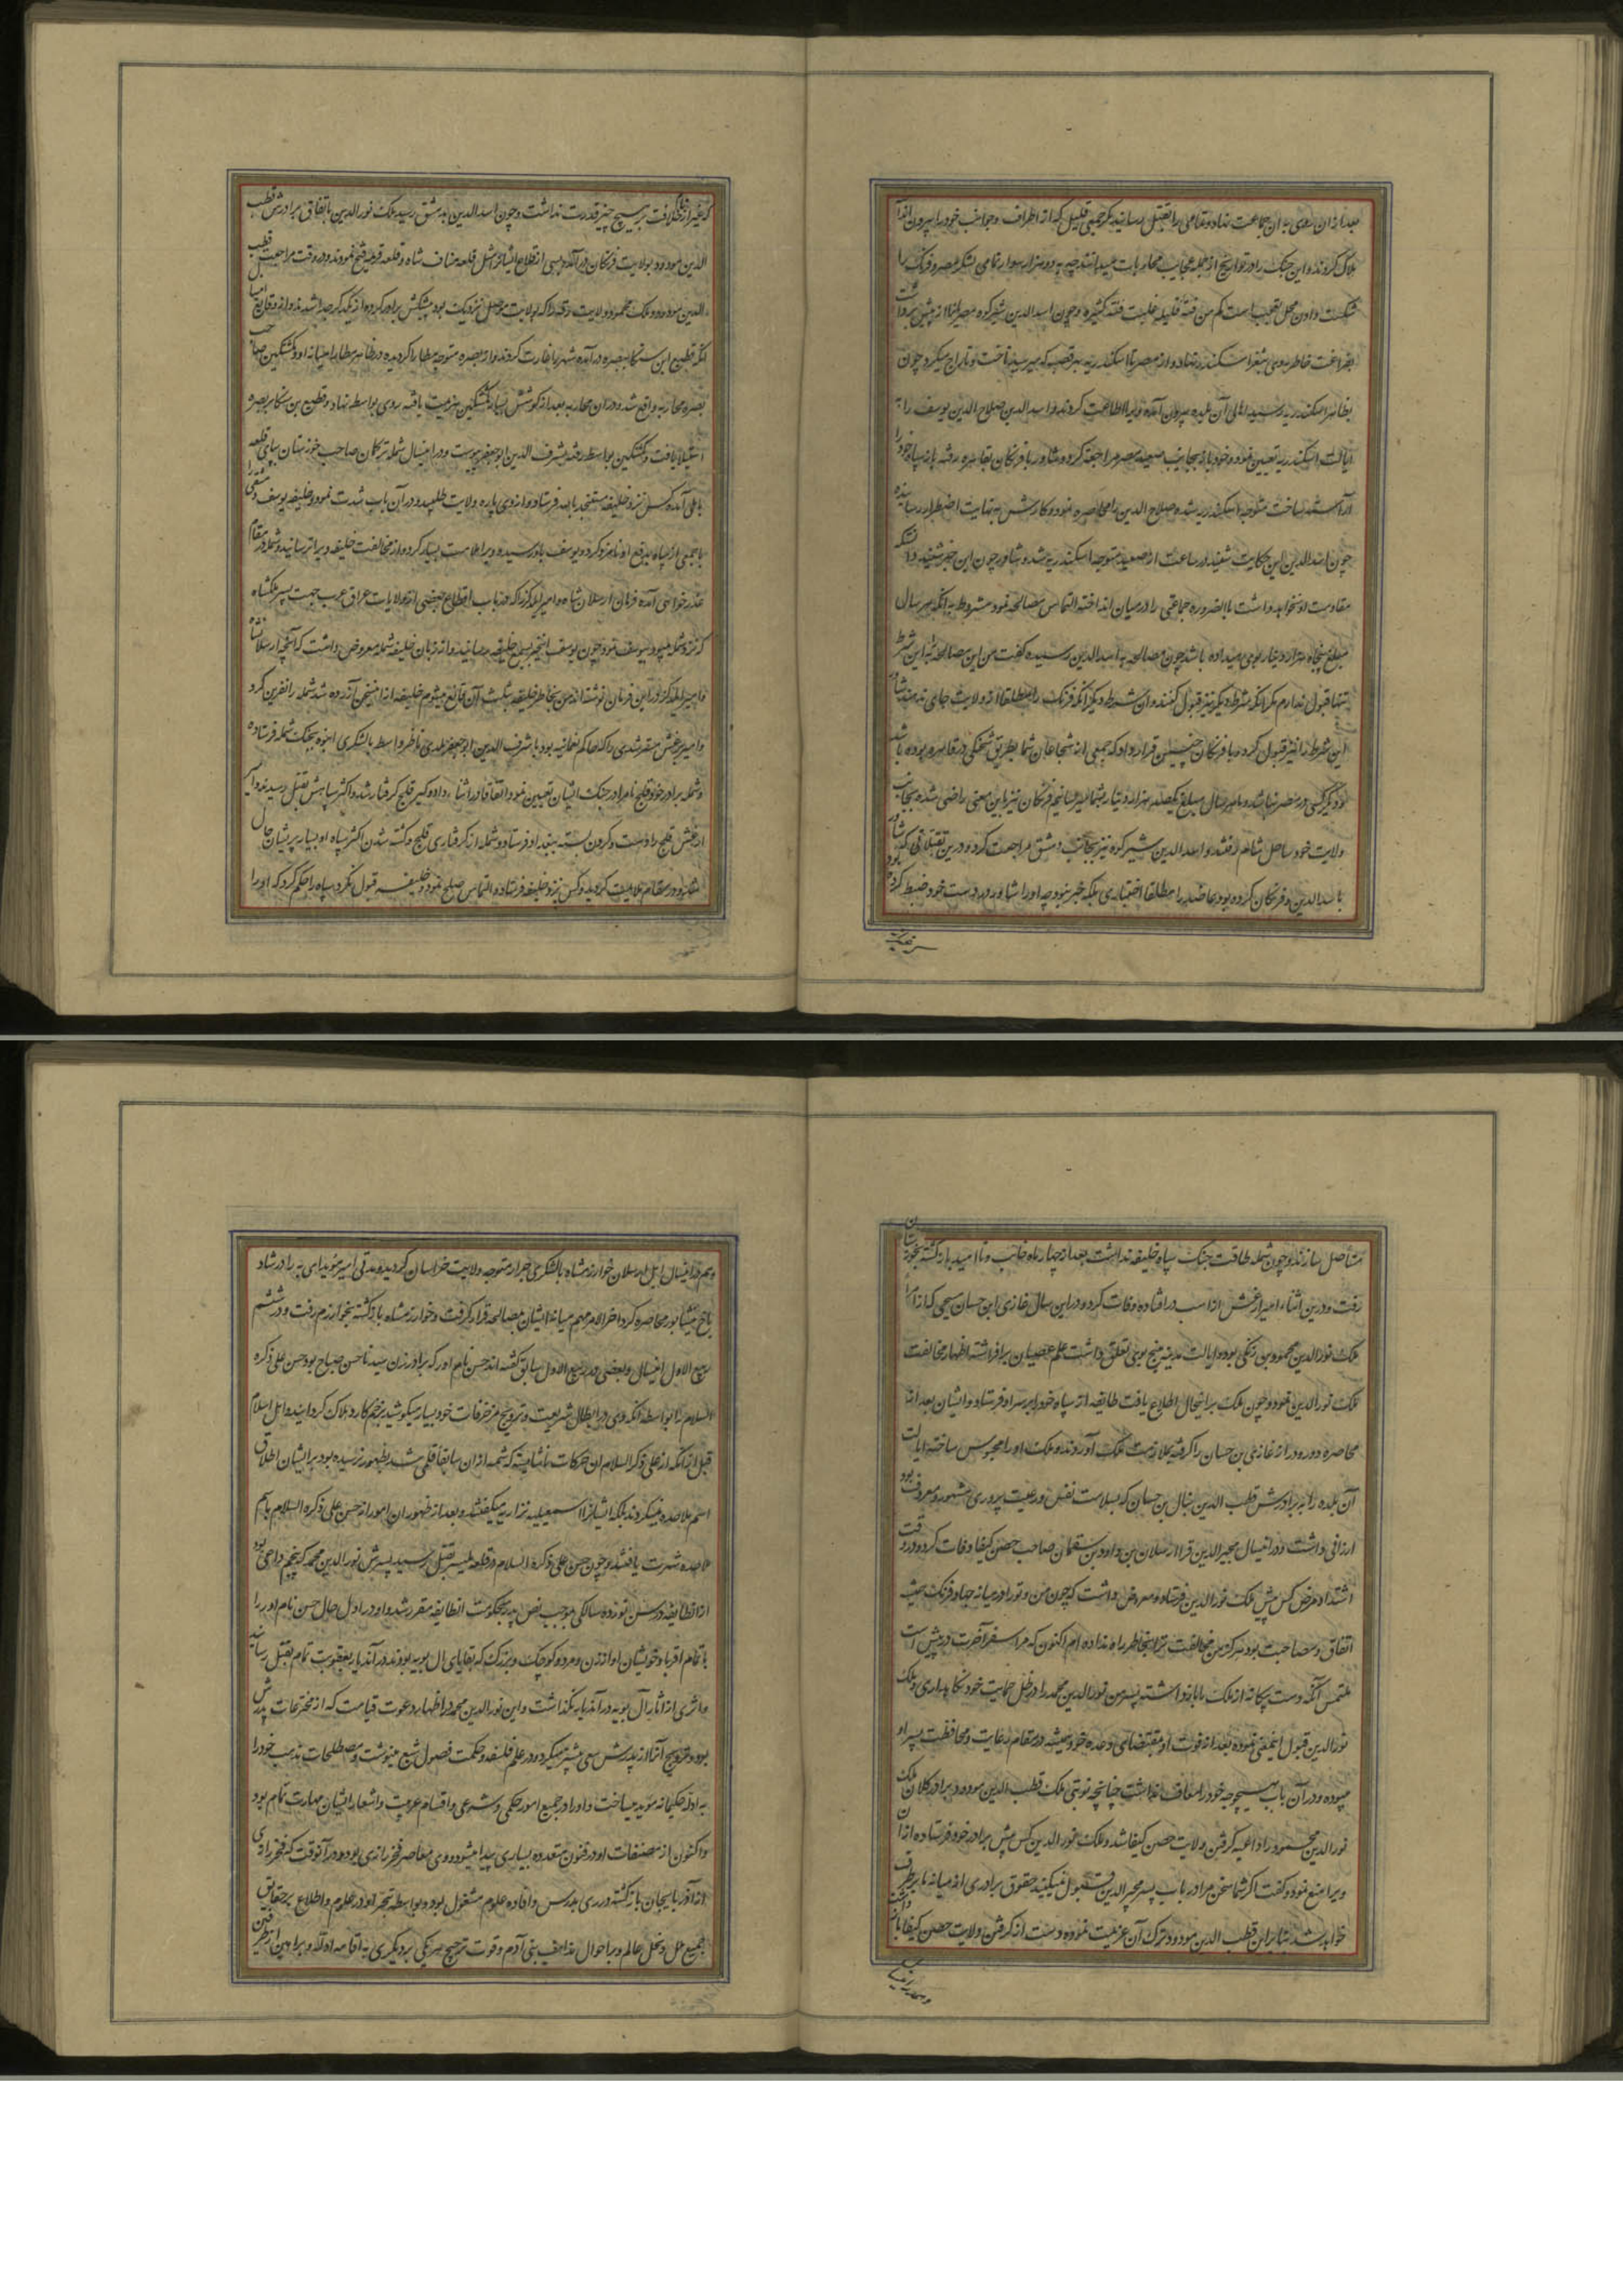 بعد ازان روی به ان جماعت نهاد و تمامی را بقتل رسانید مکر جمعی قلیل که از اطراف و جوانب خود را بیرون انداخته
هلاک کردند و این جنک را در تواریخ از جمله عجایب محاربات میدانند چه به دو هزار سوار تمامی لشکر مصر و فرنک را
شکست دادن محل تعجب است کم من فئة قلیلة غلبت فئة کثیره و چون اسد الدین شیرکوه مصریانرا از پیش برداشت
بفراغت خاطر روی بثغر اسکندریه نهاد و از مصر تا اسکندریه بهر قصبه که میرسید تاخت و تاراج میکرد و چون
بظاهر اسکندریه رسید اهالی آن بلده بیرون آمده ویرا اطاعت کردند و اسد الدین صلاح الدین یوسف را به
ایالت اسکندریه تعیین نمود و خود باز بجانب صعید مصر مراجعه کرد و شاور با فرنکان بقاهره رفته باز سپاه خود را
آراسته ساخت متوجه اسکندریه شد و صلاح الدین را محاصره نمود و کارش به نهایت اضطرار رسانیده
چون اسد الدین این حکایت شنید در ساعت از صعید متوجه اسکندریه شد و شاور چون این خبر شنید دانست که
مقاومت او نخواهد داشت بالضروره جماعتی را در میان انداخته التماس مصالحه نمود مشروط به انکه هر سال
مبلغ پنجاه هزار دینار بوی میداده باشد چون مصالحه به اسد الدین رسید کفت من این مصالحه به این شرط
تنها قبول ندارم مکر انکه شرط دیکر نیز قبول کنند و ان شرط دیکر انکه فرنک را مطلقا از ولایت جای ندهند شاور
این شرط را نیز قبول کرد و با فرنکان چنین قرار داد که جمعی از شجاعان شما بطریق شحنکی در قاهره بوده باشند
و دیکر کسی در مصر نباشد و ما هر سال مبلغ یکصد هزار دینار بشما میرسانیم فرنکان نیز باین معنی راضی شده بجانب
ولایت خود ساحل شام رفتند و اسد الدین شیرکوه نیز بجانب دمشق مراجعت کرد و درین تقبلاتی که شاور
با اسد الدین و فرنکان کرده بود عاضد را مطلقا اختیاری بلکه خبر نبود چه او را شاور در دست خود ضبط کرده بود
که غیر از نام خلافت بر هیچ چیز قدرت نداشت و چون اسد الدین بدمشق رسید ملک نور الدین باتفاق برادرش قطب
الدین مودود بولایت فرنکان در آمده بسی از قلاع ایشانرا مثل قلعه صاف شاه و قلعه قریمه فتح نمودند و در وقت مراجعت قطب
الدین مودود و ملک محمود ولایت رقه را که بولایت موصل نزدیک بود پیشکش برادر کرده از یکدیکر جدا شدند و از وقایع اینسال
انکه قطیع ابن سنکا ببصره در آمده شهر را غارت کردند و از بصره متوجه مطارا کردیده در ظاهر مطارا میانه او و کشتکین صاحب
بصره محاربه واقع شد و در ان محاربه بعد از کوشش بسیار کشتکین هزیمت یافته روی بواسط نهاد و قطیع بن سنکا بر بصره
استیلا یافت و کشتکین بواسط رفته بشرف الدین ابو جعفر پیوست و در اینسال شمله ترکمان صاحب خوزستان بپای قلعه
ماهکی آمده کس نزد خلیفه مستنجد بالله فرستاد و از وی پاره ولایت طلبید و در آن باب شدت نمود و خلیفه یوسف دمشقی را
با جمعی از سپاه بدفع او نامزد کرد و یوسف باو رسیده ویرا ملامت بسیار کرد و از مخالفت خلیفه ویرا ترسانید و شمله در مقام
عذرخواهی آمده فرمان ارسلان شاه و امیر ایلدکز را که در باب اقطاع بعضی از ولایات عراق عرب جهت پسر ملکشاه
که نزد شمله میبود بیوسف نمود چون یوسف اینخبر بسمع خلیفه رسانید و از زبان خلیفه شمله معروض داشت که آنچه ارسلانشاه
و امیر ایلدکز در این فرمان نوشته اند من بخاطر خلیفه بثلث آن قانع میشوم خلیفه از اینسخن آزرده شد شمله را نفرین کرد
و شمله برادر خود قلج نام را در جنک ایشان تعیین نمود اتفاقا در اثناء دار و کیر قلج کرفتار شد و اکثر سپاهش بقتل رسیدند و امیر
ارغش قلج را دست و کردن بسته ببغداد فرستاد و شمله از کرفتاری قلج و کشته شدن اکثر سپاه او بسیار پریشان حال
شده در مقام ملایمت کردید و کس نزد خلیفه فرستاد و التماس صلح نمود و خلیفه قبول نکرد سپاه را حکم کرد که او را
مستاصل سازند و چون شمله طاقت جنک سپاه خلیفه نداشت بعد از چهار ماه خائب و ناامید باز کشته بخوزستان
رفت و درین اثناء امیر ارغش از اسب در افتاده وفات کرد و در این سال غازی ابن حسان منبجی که از امراء
ملک نور الدین محمود بن زنکی بود و ایالت مدینه منبج بوی تعلق داشت علم عصیان برافراشته اظهار مخالفت
ملک نور الدین نمود و چون ملک بر اینحال اطلاع یافت طایفه از سپاه خود را بر سر او فرستاد و ایشان بعد از
محاصره دور و دراز غازی بن حسان را کرفته بملازمت ملک آوردند و ملک او را محبوس ساخته ایالت
آن بلده را به برادرش قطب الدین ینال بن حسان که بسلامت نفس و رعیت پروری مشهور و معروف بود
ارزانی داشت و در اینسال مجیر الدین قرا ارسلان بن داود بن سقمان صاحب حصن کیفا وفات کرد و در وقت
اشتداد مرض کس پیش ملک نور الدین فرستاده معروض داشت که چون من و تو را در میانه جهاد فرنک همیشه
اتفاق و مصاحبت بود هرکز من مخالفت ترا بخاطر راه نداده ام اکنون که مرا سفر آخرت در پیش است
ملتمس آنکه دست بیکانه از ملک ما باز داشته پسر من نور الدین محمد را در ظل حمایت خود نکاه داری و ملک
نور الدین قبول اینمعنی نموده بعد از فوت او بمقتضای وعده خود همیشه در مقام رعایت و محافظت پسر او
میبوده و در آن باب بهیچوجه خود را معاف نداشت چنانچه نوبتی ملک قطب الدین مودود برادر کلان ملک
نور الدین محمود را داعیه کرفتن ولایت حصن کیفا شد و ملک نور الدین کس پیش برادر خود فرستاده از ان
ویرا منع نمود و کفت اکر شما سخن مرا در باب پسر مجیر الدین قبول نمیکنید حقوق برادری از میانه ما برطرف
خواهد شد بنابراین قطب الدین مودود ترک آن عزیمت نموده دست از کرفتن ولایت حصن کیفا باز داشت
و هم در اینسال
و هم در اینسال ایل ارسلان خوارزمشاه با لشکری جرار متوجه ولایت خراسان کردید و مدتی امیر مؤید ای به را در شادیاخ
نیشابور محاصره کرد اخر الامر مهم میانه ایشان بمصالحه قرار کرفت و خوارزمشاه باز کشته بخوارزم رفت و در ششم
ربیع الاول اینسال و بعضی در ربیع الاول سابق کفته اند حسن نام که برادر زن سیدنا حسن صباح بود حسن علی ذکره
السلام را بواسطه انکه وی در ابطال شریعت و ترویج مزخرفات خود بسیار میکوشید بزخم کارد هلاک کردانید و اهل اسلام
قبل از انکه از علی ذکره السلام ان حرکات ناشایسته که شمه از ان سابقا قلمی شد بظهور نرسیده بود بر ایشان اطلاق
اسم ملاحده نمیکردند بلکه ایشانرا اسمعیلیه نزاریه میکفتند و بعد از ظهور ان امور از حسن علی ذکره السلام باسم
ملاحده شهرت یافتند و چون حسن علی ذکره السلام در قلعه لمسر بقتل رسید پسرش نور الدین محمد که پنجم داعی بود
از انطایفه در سن نوزده سالکی بموجب نص پدر بحکومت انطایفه مقرر شد و او در اول حال حسن نام را
با تمام اقربا و خویشان او از زن و مرد و کوچک و بزرک که بقایای ال بویه بودند در آندیار بعقوبت تمام بقتل رسانید
و اثری از اثار آل بویه در آندیار نکذاشت و این نور الدین محمد در اظهار دعوت قیامت که از مخترعات پدرش
بود و ترویج آنها از پدرش سعی بیشتر میکرد و در علم فلسفه و حکمت فصول شیع مینوشت و مصطلحات مذهب خود را
به ادله حکیمانه مؤید میساخت و او را در جمیع امور حکمی و شرعی و اقسام عربیت و اشعار ایشان مهارت تمام بود
و اکنون از مصنفات او در فنون متعدده بسیاری پیدا میشود و وی معاصر فخر رازی بود و در آنوقت که فخر رازی
از آذربایجان باز کشته در ری بدرس و افاده علوم مشغول بود و بواسطه تبحر او در علوم و اطلاع بر حقایق
جمیع ملل و نحل عالم و بر احوال مذاهب بنی آدم و قوت ترجیح هر یکی بر دیکری به اقامه ادله و براهین از طرفین